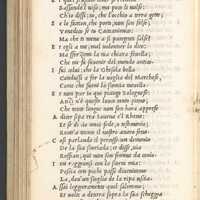 E quel frustato celar si credette
Bassando'l viso; ma poco li valse:
Ch'io dissi; tu, che l'occhio a terra gette;
S e le fattion, che porti, non son false;
V enedico se tu Caccianimico:
Ma che ti mena a si pungenti salse?
E t egli a me; mal volentier lo dico:
Ma sforzami la tua chiara favella;
Che mi fa sovenir del mondo antico.
I fui colui, che la Ghisola bella
Condussi a far la voglia del Marchese,
Come che suoni la sconcia novella.
E t non pur io qui piango Bolognese:
Anzi n'è questo luogo tanto pieno;
Che tante lingue non son hora apprese
A dicer sipa tra Savena e'l Rheno:
Et se di ciò vuoi fede, o testimonio;
Recati a mente il nostro avaro seno.
C osi parlando il percosse un demonio
De la sua scuriada; et disse, via
Ruffian; qui non son femine da conio.
I mi raggiunsi con la scorta mia:
Poscia con pochi passi divenimmo,
La, dov'un scoglio de la ripa uscia.
A ssai leggeramente quel salimmo:
Et volti a destra sopra la sua scheggia